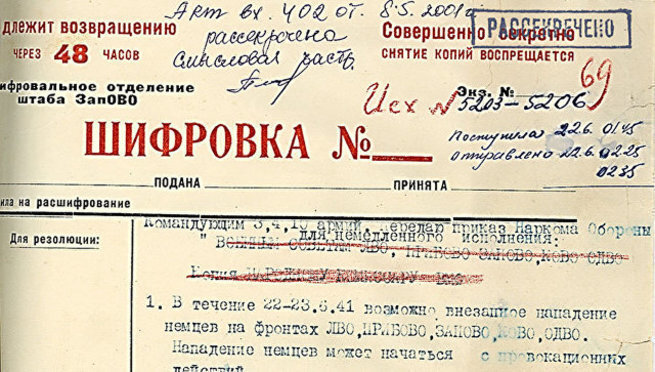 Акт вх. 402 от 8.5.2001г
рассекречено
смысловая част.
длежит возвращению
ЧЕРЕЗ 48 ЧАСОВ
Совершенно секретно
РАССЕКРЕЧЕНО
СНЯТИЕ КОПИЙ ВОСПРЕЩАЕТСЯ
ифровальное отделение
штаба ЗапОВО
Экз. №
69
Исх N 5203-5206
ШИФРОВКА №
Поступила 22.6. 01.45
отправлено 22.6. 02.25
02.35
ПОДАНА, ПРИНЯТА
ила на расшифрование
Для резолюции:
Командующим 3,4,10 армий. Передаю приказ Наркома Обороны
для немедленного исполнения:
" ВОЕННЫМ СОВЕТАМ ЛВО, ПРИБОВО ЗАПОВО,КОВО ОДВО
Копия НАРОДНОМУ КОМИССАРУ ВМФ
1. В течение 22-23.6.41 возможно внезапное нападение
немцев на фронтах ЛВО,ПРИБОВО,ЗАПОВО,КОВО,ОДВО.
Нападение немцев может начаться с провокационных
действий